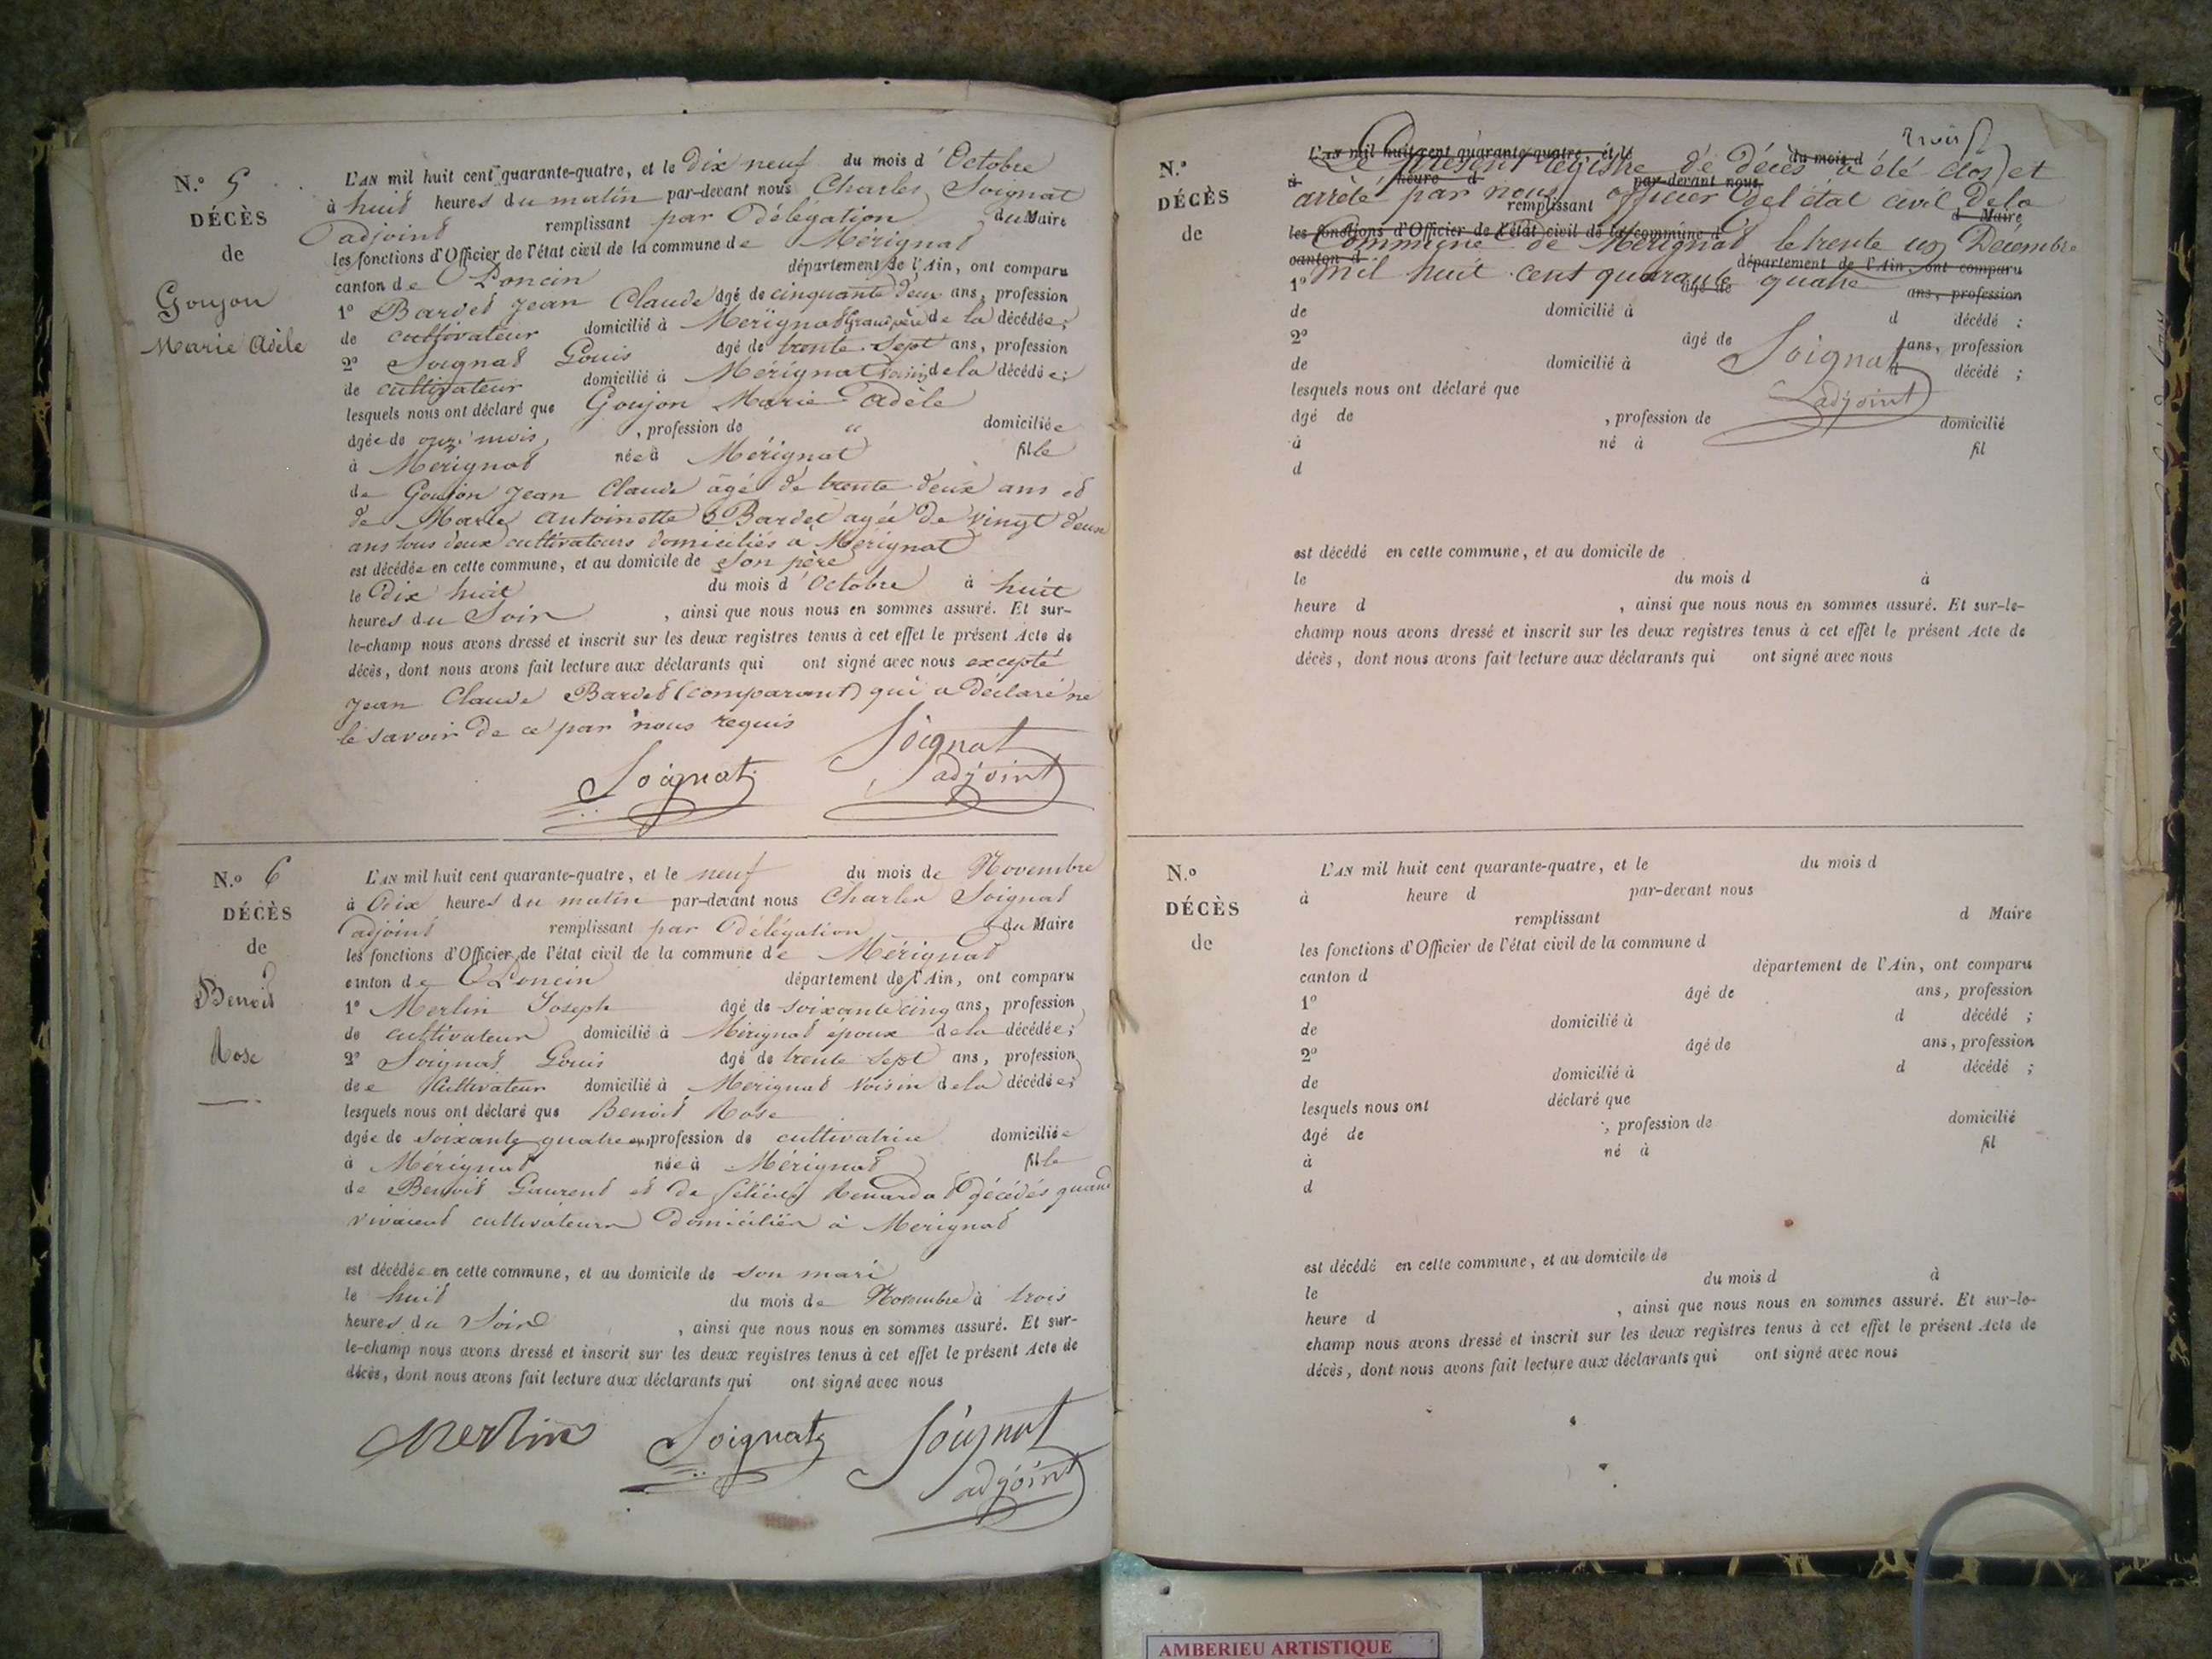 N.º 5
DÉCÈS
de
Goujon
Marie Adèle
L'AN mil huit cent quarante-quatre, et le Dix neuf du mois d'Octobre
à huit heures du matin par-devant nous Charles Soignat
adjoint remplissant par Délégation du Maire
les fonctions d'Officier de l'état civil de la commune de Mérignat
canton de Poncin département de l'Ain, ont comparu
1º Bardet Jean Claude âgé de cinquante deux ans, profession
de cultivateur domicilié à Merignat Grand père de la décédée;
2º Soignat Louis âgé de trente sept ans, profession
de cultivateur domicilié à Mérignat voisin de la décédée;
lesquels nous ont déclaré que Goujon Marie Adèle
âgée de onze mois, profession de " domiciliée
à Mérignat née à Mérignat fille
de Goujon Jean Claude âgé de trente deux ans et
de Marie Antoinette Bardet agée de vingt deux
ans tous deux cultivateurs domiciliés à Merignat
est décédée en cette commune, et au domicile de son père
le Dix huit du mois d'Octobre à huit
heures du Soir, ainsi que nous nous en sommes assuré. Et sur-
le-champ nous avons dressé et inscrit sur les deux registres tenus à cet effet le présent Acte de
décès, dont nous avons fait lecture aux déclarants qui ont signé avec nous excepté
Jean Claude Bardet (comparant) qui a déclaré ne
le savoir de ce par nous requis
Soignat
Soignat adjoint
N.º 6
DÉCÈS
de
Benoit
Rose
L'AN mil huit cent quarante-quatre, et le neuf du mois de Novembre
à Dix heures du matin par-devant nous Charles Soignat
adjoint remplissant par Délégation du Maire
les fonctions d'Officier de l'état civil de la commune de Mérignat
canton de Poncin département de l'Ain, ont comparu
1º Merlin Joseph âgé de soixante cinq ans, profession
de cultivateur domicilié à Mérignat époux de la décédée;
2º Soignat Louis âgé de trente sept ans, profession
de cultivateur domicilié à Mérignat voisin de la décédée;
lesquels nous ont déclaré que Benoit Rose
âgée de soixante quatre ans, profession de cultivatrice domiciliée
à Mérignat née à Mérignat fille
de Benoit Laurent et de décédés quand
vivaient cultivateurs Domiciliés à Merignat
est décédée en cette commune, et au domicile de son mari
le huit du mois de Novembre à trois
heures du Soir, ainsi que nous nous en sommes assuré. Et sur-
le-champ nous avons dressé et inscrit sur les deux registres tenus à cet effet le présent Acte de
décès, dont nous avons fait lecture aux déclarants qui ont signé avec nous
Merlin Soignat Soignat
adjoint
N.º
DÉCÈS
de
L'AN mil huit cent quarante-quatre, et le du mois d
Le présent registre de Décès a été clos et
à heure d par-devant nous
arrêté par nous officier de l'état civil de la
remplissant d Maire
les fonctions d'Officier de l'état civil de la commune d
Commune de Mérignat le trente un Décembre
canton d département de l'Ain, ont comparu
mil huit cent quarante quatre
1º âgé de ans, profession
de domicilié à d décédé ;
2º âgé de ans, profession
Soignat
de domicilié à d décédé ;
lesquels nous ont déclaré que
adjoint
âgé de , profession de domicilié
à né à fil
d
est décédé en cette commune, et au domicile de
le du mois d à
heure d , ainsi que nous nous en sommes assuré. Et sur-le-
champ nous avons dressé et inscrit sur les deux registres tenus à cet effet le présent Acte de
décès, dont nous avons fait lecture aux déclarants qui ont signé avec nous
N.º
DÉCÈS
de
L'AN mil huit cent quarante-quatre, et le du mois d
à heure d par-devant nous
remplissant d Maire
les fonctions d'Officier de l'état civil de la commune d
canton d département de l'Ain, ont comparu
1º âgé de ans, profession
de domicilié à d décédé ;
2º âgé de ans, profession
de domicilié à d décédé ;
lesquels nous ont déclaré que
âgé de , profession de domicilié
à né à fil
d
est décédé en cette commune, et au domicile de
le du mois d à
heure d , ainsi que nous nous en sommes assuré. Et sur-le-
champ nous avons dressé et inscrit sur les deux registres tenus à cet effet le présent Acte de
décès, dont nous avons fait lecture aux déclarants qui ont signé avec nous
AMBERIEU ARTISTIQUE